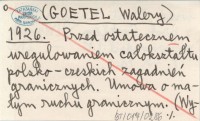 (GOETEL Walery)
1926. Przed ostatecznem
uregulowaniem całokształtu
polsko-czeskich zagadnień
granicznych. Umowa o ma-
łym ruchu granicznym. (Wy-